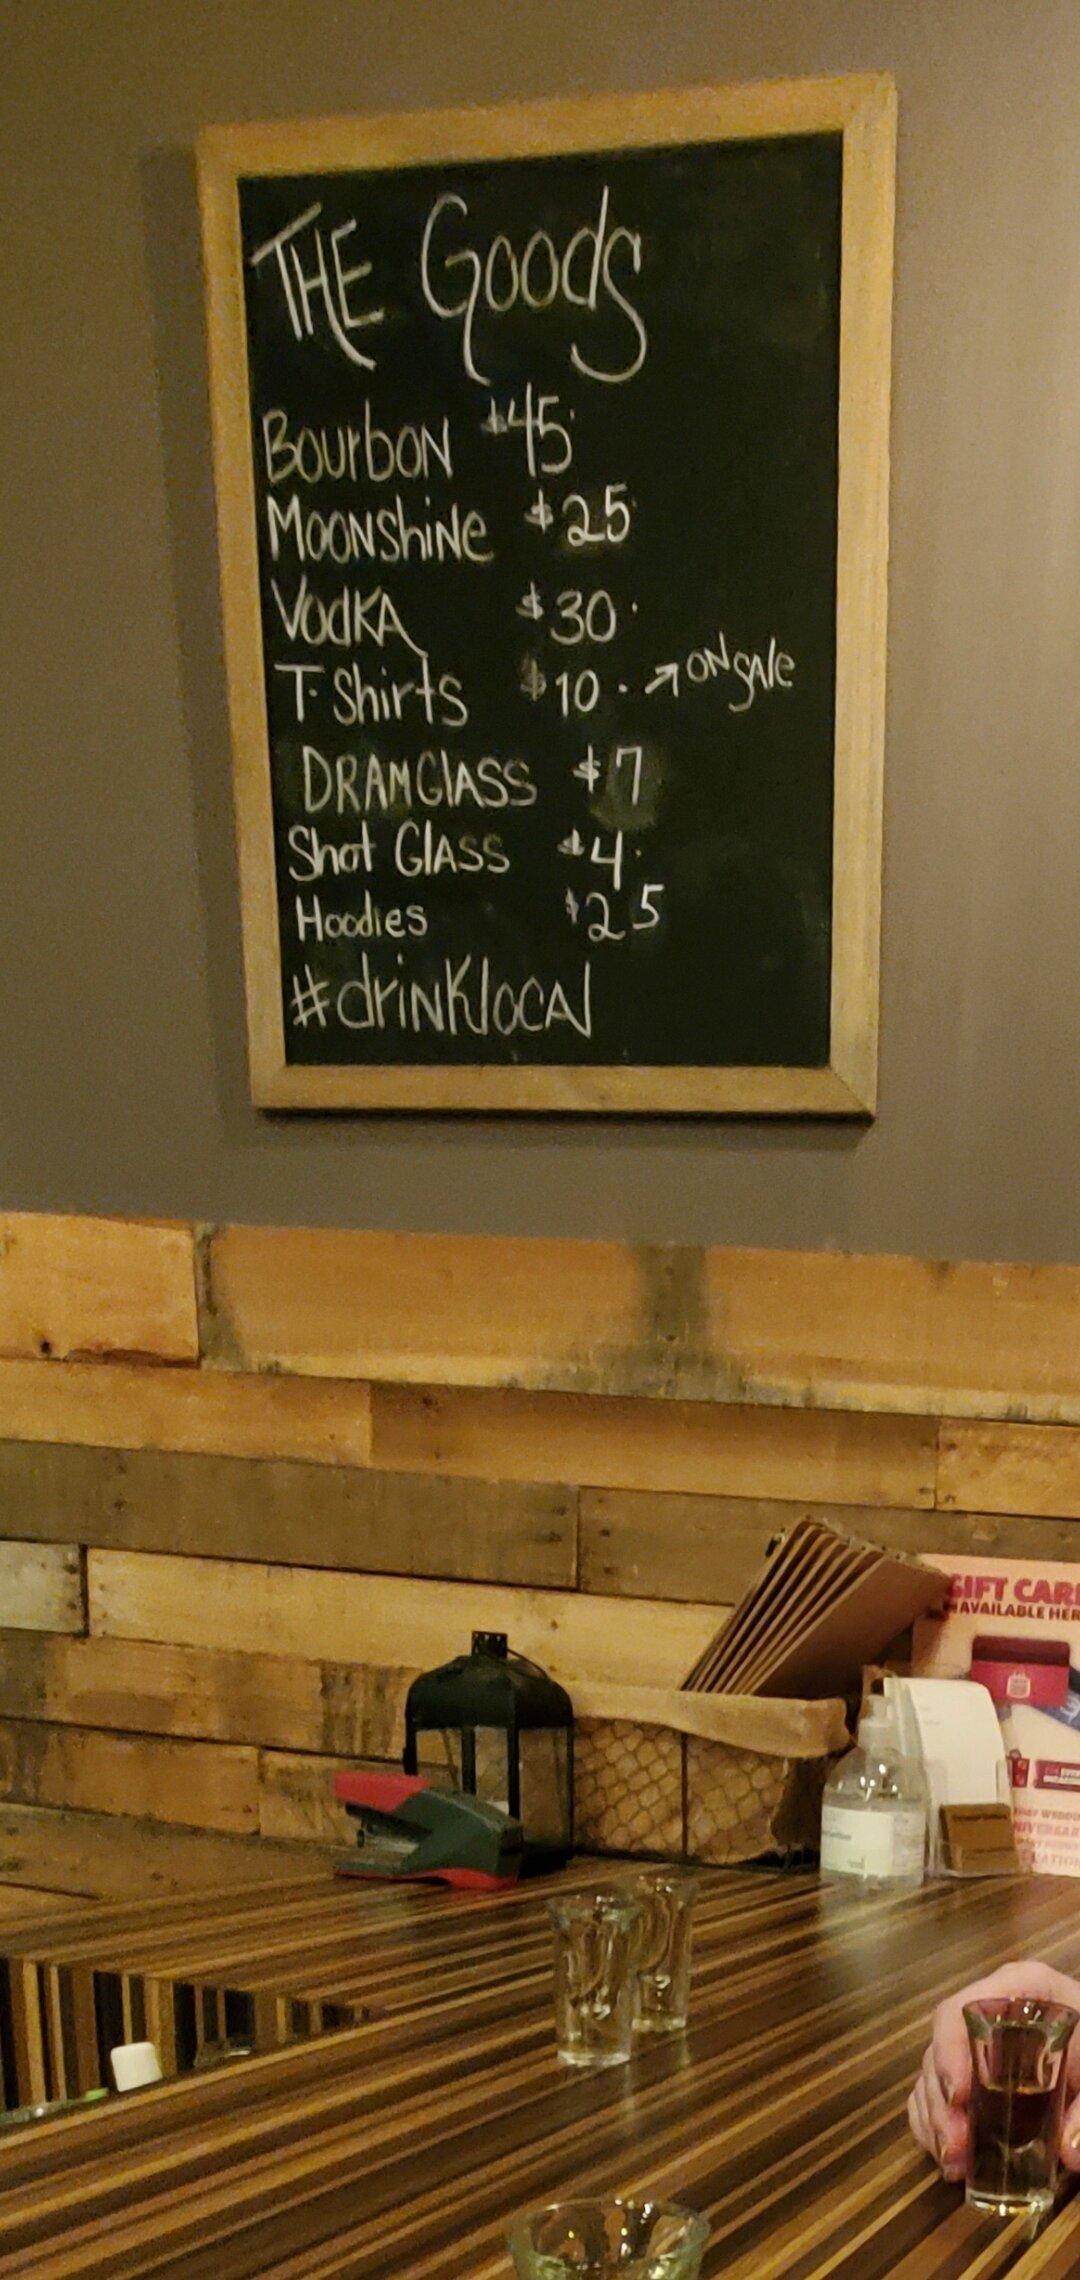 THE Goods
Bourbon $45
Moonshine $25
Vodka $30
T-Shirts $10 ON SALE
DRAM GLASS $7
Shot GLASS $4
Hoodies $25
#drinklocal
GIFT CAR
AVAILABLE HER